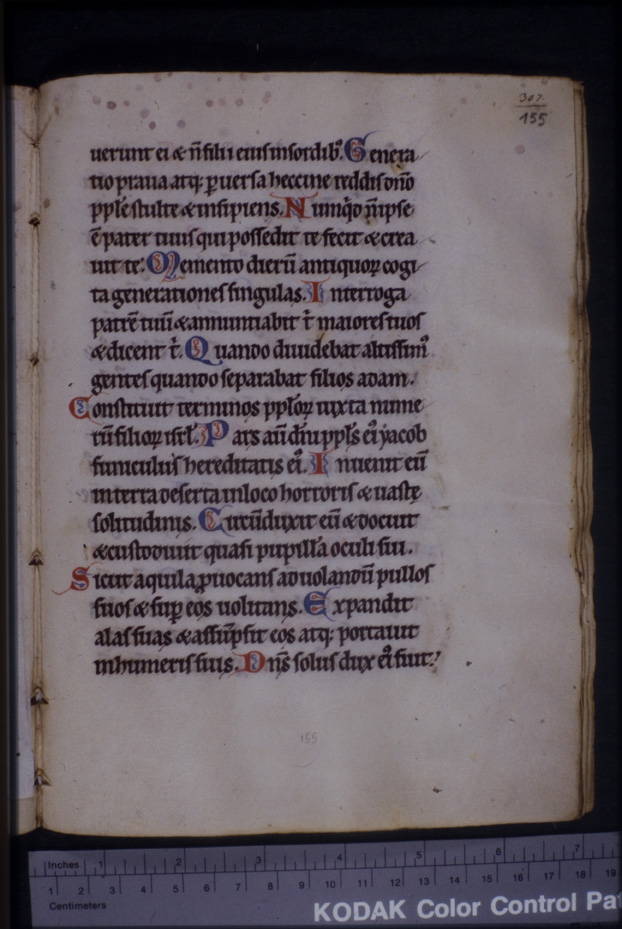 307.
155
uerunt ei & n̄ filii eius in sordib᷒. Genera
tio praua atq; ꝑuersa heccine reddis dn̄o
pple stulte & insipiens. Numq̇d n̄ ipse
ē pater tuus qui possedit te fecit & crea
uit te. Memento dierū antiquoꝝ cogi
ta generationes singulas. Interroga
patrē tuū & annuntiabit t̄ maiores tuos
& dicent t̄. Quando diuidebat altissim᷒
gentes quando separabat filios adam.
Constituit terminos pploꝝ iuxta nume
rū filioꝝ isrl̄. Pars aū dn̄i ppls ei᷒ yacob
funiculus hereditatis ei᷒. Inuenit eū
in terra deserta in loco horroris & uastę
solitudinis. Circūduxit eū & docuit
& custodiuit quasi pupilla oculi sui.
Sicut aquila ꝓuocans ad uolandū pullos
suos & suꝑ eos uolitans. Expandit
alas suas & assūpsit eos atq; portauit
in humeris suis. Dn̄s solus dux ei᷒ fuit:
155
Inches 1 2 3 4 5 6 7
1 2 3 4 5 6 7 8 9 10 11 12 13 14 15 16 17 18 19
Centimeters
KODAK Color Control Pat